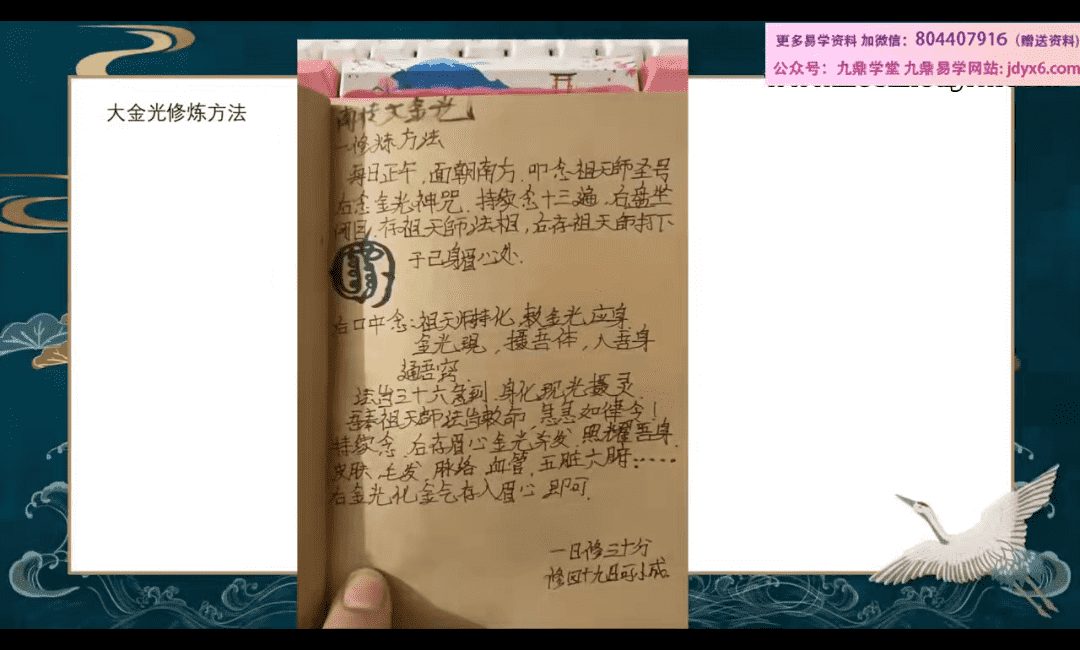 更多易学资料 加微信：804407916（赠送资料）
公众号：九鼎学堂 九鼎易学网站：jdyx6.com
大金光修炼方法
大金光
一修炼方法
每日正午，面朝南方．叩念祖天師圣号
右念金光神咒．持续念十三遍，右盘坐
闭目．存祖天師法相，右存祖天師打下
于己身眉心处．
右口中念：祖天师转化，敕金光应身
金光现，摄吾体，入吾身
通吾窍．
法旨三十六急到．身化现光摄灵．
吾奉祖天師法旨敕命，急急如律令！
持续念，右存眉心金光笨发．照耀吾身．
皮肤．毛发．脉络．血管．五脏六腑：……
右金光化金气存入眉心即可．
一日修三十分
修四十九日可小成